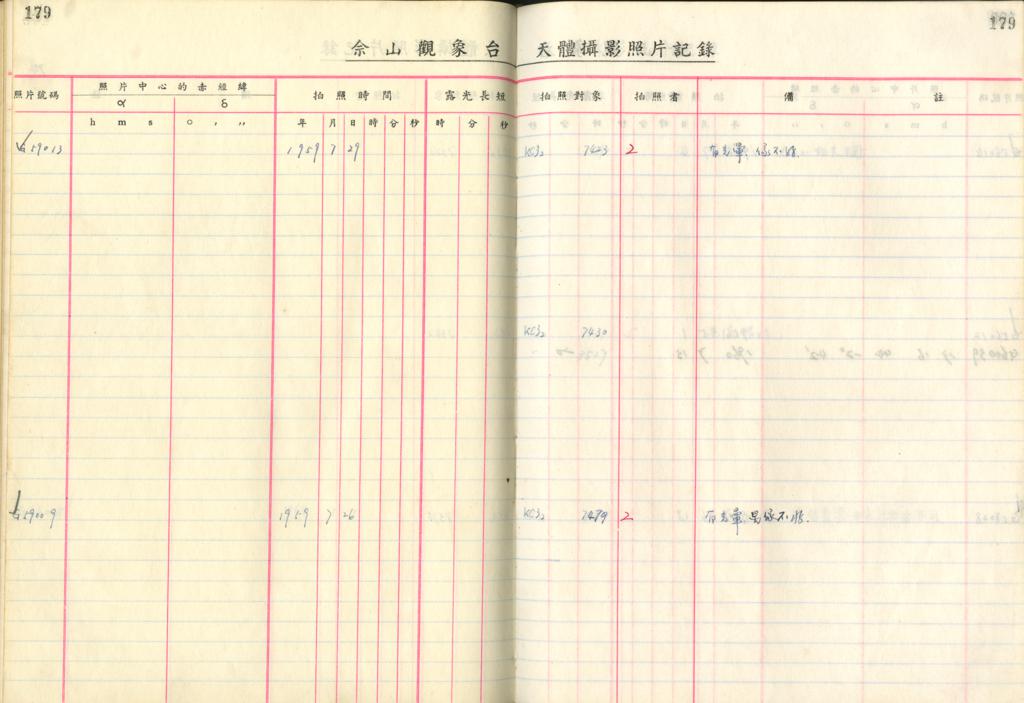 179
179
佘山觀象台 天體攝影照片記錄
照片號碼 照片中心的赤經緯 拍照時間 露光長短 拍照對象 拍照者 備 註
α δ
h m s ° ′ ″ 年 月 日 時 分 秒 時 分 秒
59013 1959 7 29 7423 2 有光暈, 像不好.
7430
59009 1959 7 26 7479 2 有光暈, 星像不好.